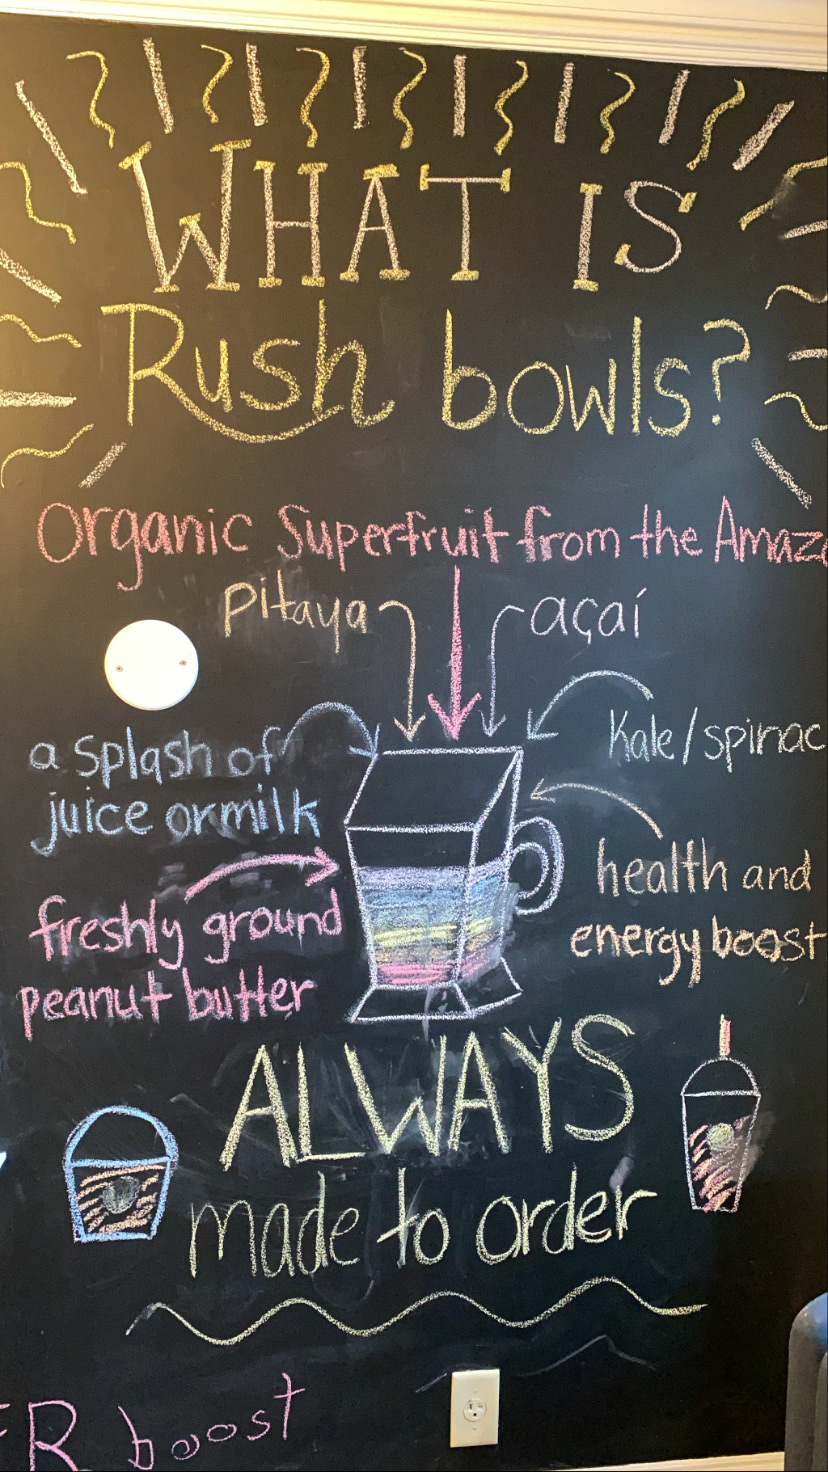 WHAT IS
Rush bowls?
Organic Superfruit from the Amaz
Pitaya
açaí
a splash of
juice or milk
Kale/spinac
freshly ground
peanut butter
health and
energy boost
ALWAYS
made to order
R boost